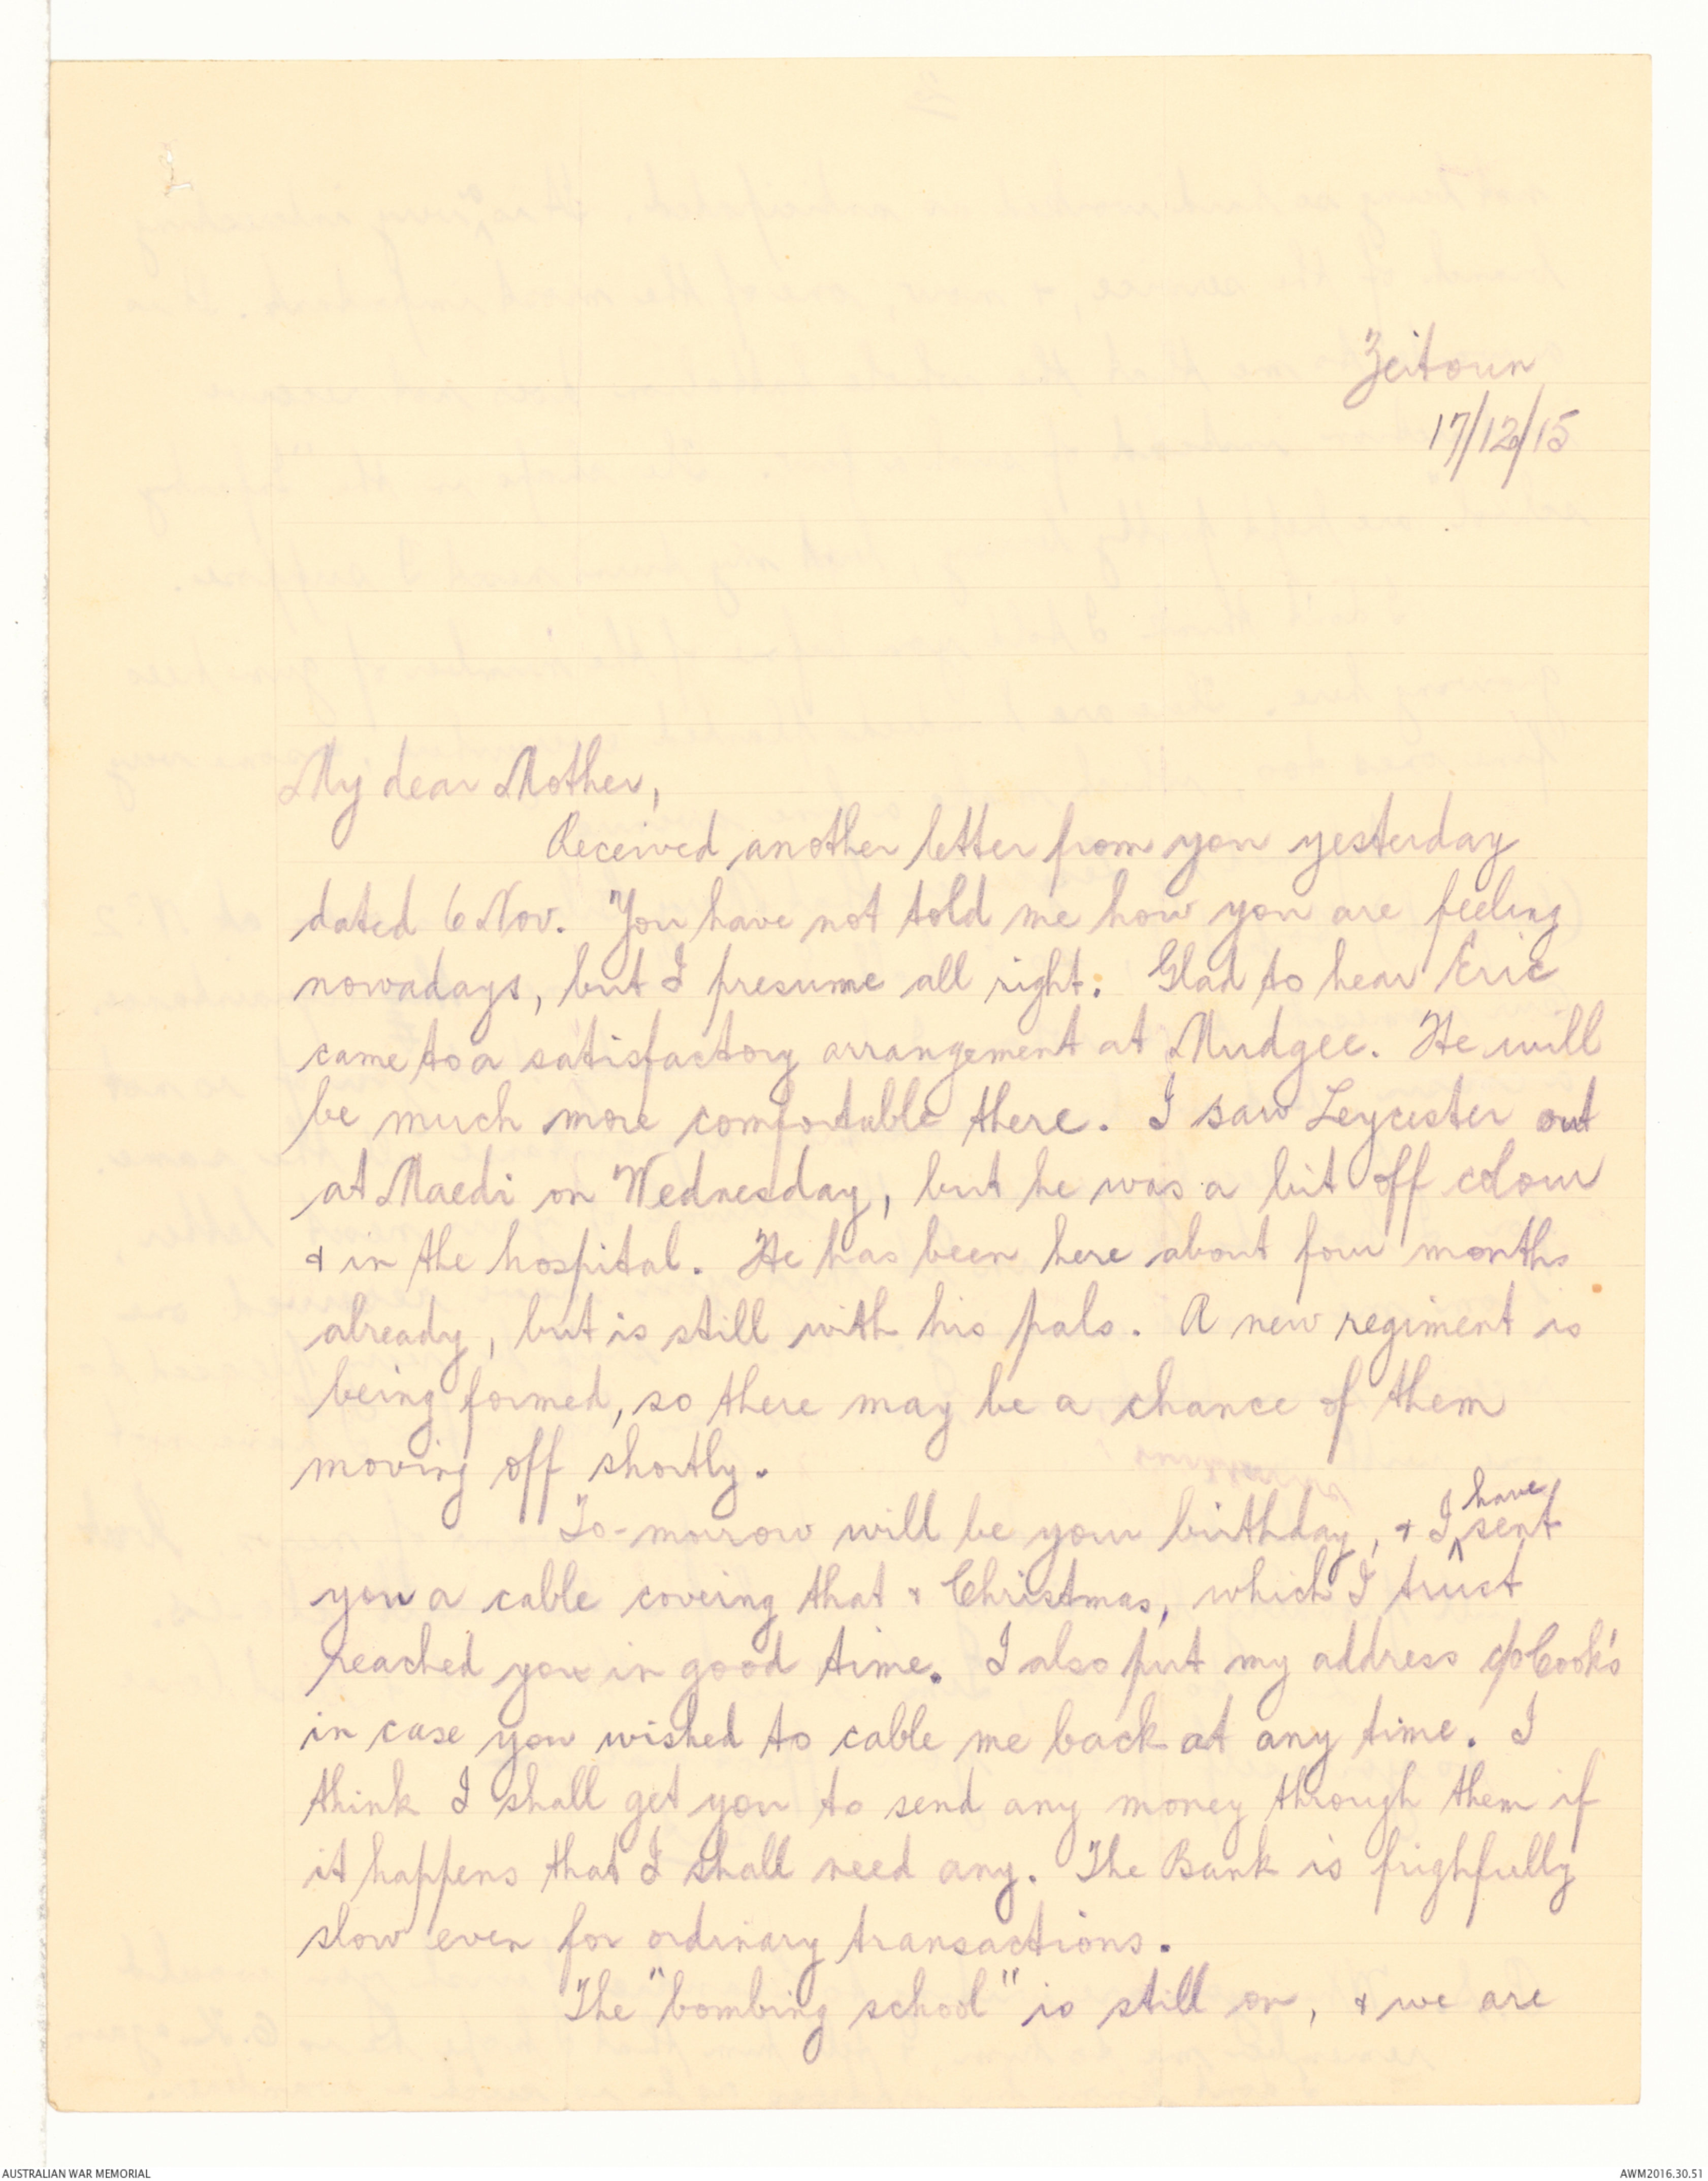 Zeitoun
17/12/15
My dear Mother,
Received another letter from you yesterday
dated 6 Nov. You have not told me how you are feeling
nowadays, but I presume all right. Glad to hear Eric
came to a satisfactory arrangement at Mudgee. He will
be much more comfortable there. I saw Leycester out
at Maedi on Wednesday, but he was a bit off colour
& in the hospital. He has been here about four months
already, but is still with his pals. A new regiment is
being formed, so there may be a chance of them
moving off shortly.
To-morrow will be your birthday, & I ^have sent
you a cable coveing that & Christmas, which I trust
reached you in good time. I also put my address c/o Cook's
in case you wished to cable me back at any time. I
think I shall get you to send any money through them if
it happens that I shall need any. The Bank is frighfully
slow even for ordinary transactions.
The "bombing school" is still on, & we are
AUSTRALIAN WAR MEMORIAL
AWM2016.30.51